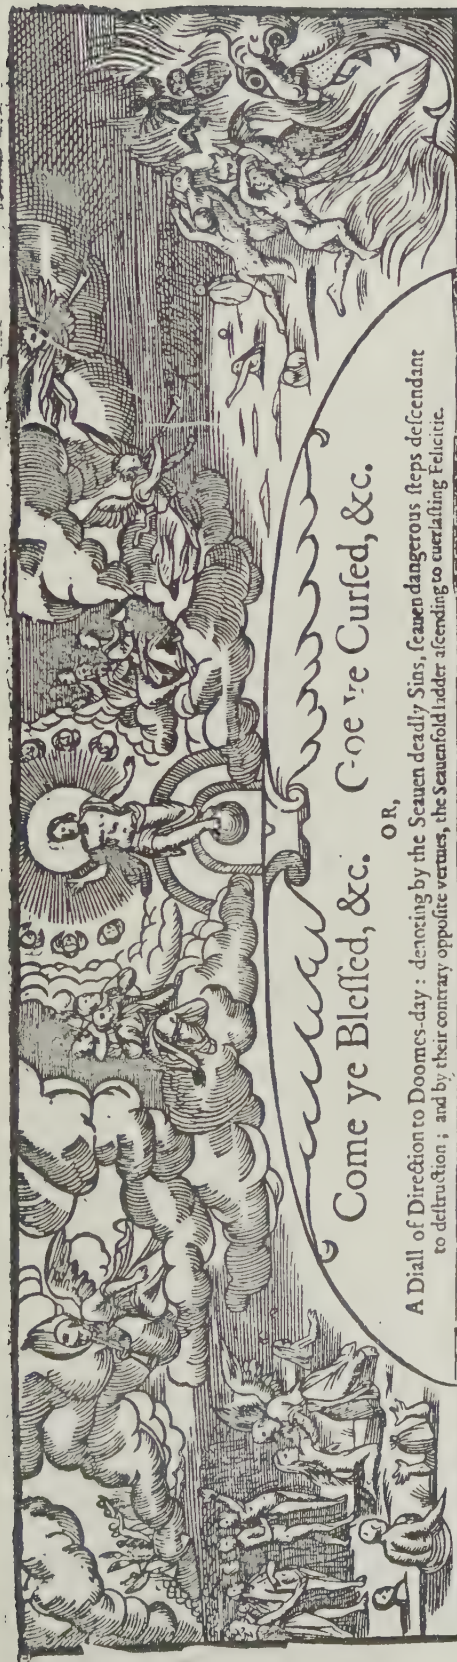 Come ye Bleſſed, &c. Goe ye Curſed, &c.
OR,
A Diall of Direction to Doomes-day : denoting by the Seauen deadly Sins, ſeauen dangerous ſteps deſcendant
to deſtruction ; and by their contrary oppoſite vertues, the Seauenfold ladder aſcending to euerlaſting Felicitie.